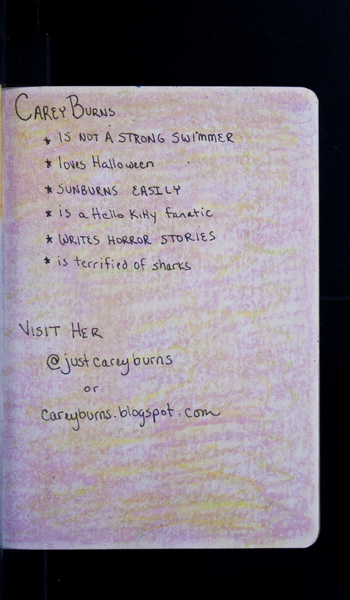 CAREY BURNS
* IS NOT A STRONG SWIMMER
* loves Halloween
* SUNBURNS EASILY
* is a Hello Kitty fanatic
* WRITES HORROR STORIES
* is terrified of sharks
VISIT HER
@justcareyburns
or
careyburns.blogspot.com